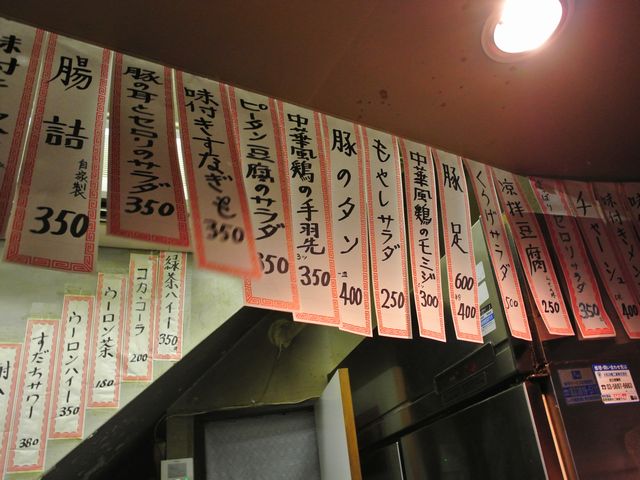 味付き
腸詰
自家製
350
豚の耳とセロリのサラダ
350
味付きすなぎも
350
ピータン豆腐のサラダ
350
中華風鶏の手羽先
350
豚のタン
400
もやしサラダ
250
中華風鶏のモミジ
300
豚足
600
400
くらげサラダ
500
涼拌豆腐
250
セロリサラダ
350
チャーシュー
400
味付き
緑茶ハイ
350
コカ・コーラ
200
ウーロン茶
180
ウーロンハイ
350
すだちサワー
380